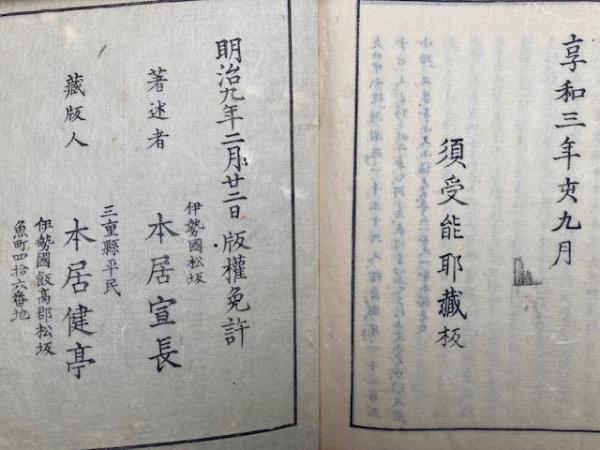 享和三年亥九月
須受能耶藏板
明治九年二月廿二日版權免許
伊勢國松坂
著述者 本居宣長
三重縣平民
藏版人 本居健亭
伊勢國飯高郡松坂
魚町四拾六番地